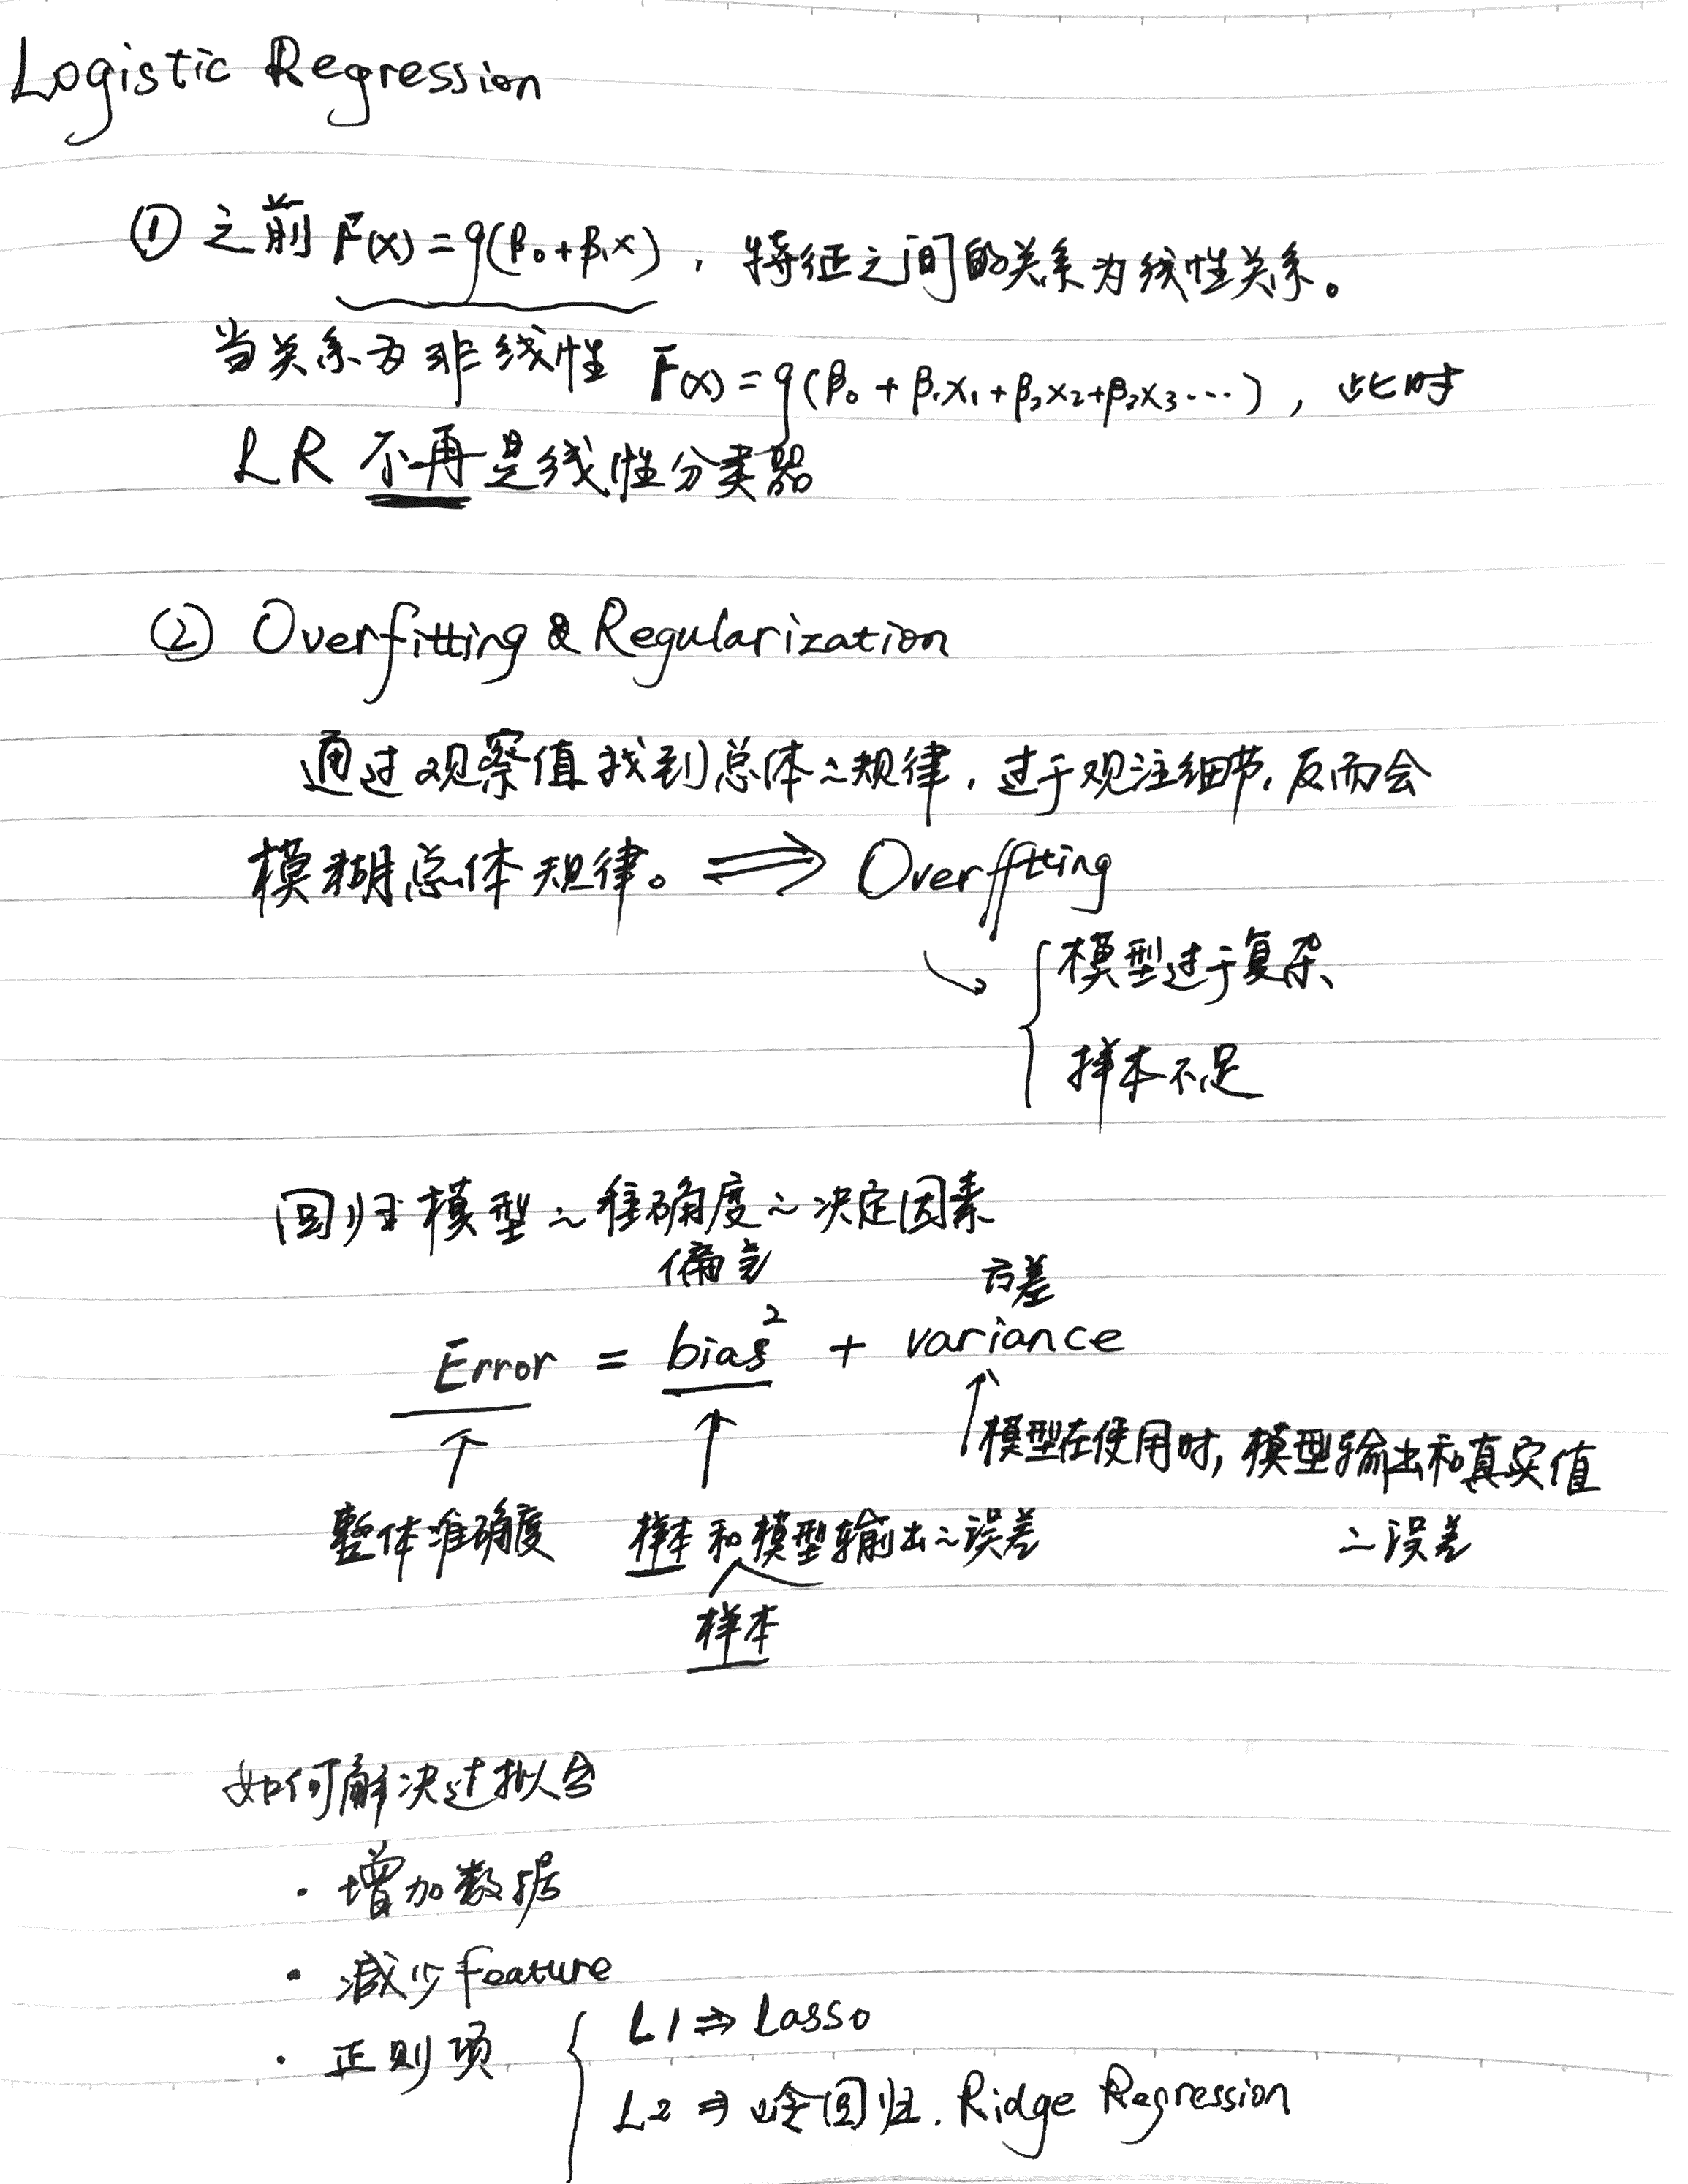 Logistic Regression
① 之前 F(x) = g(β₀+β₁x) , 特征之间的关系为线性关系。
当关系为非线性 F(x) = g(β₀ + β₁x₁ + β₂x₂ + β₃x₃ ...) , 此时
LR 不再是线性分类器
② Overfitting & Regularization
通过观察值找到总体~规律, 过于观注细节, 反而会
模糊总体规律。 ⇒ Overfitting
模型过于复杂
样本不足
回归模型~准确度~决定因素
偏差 方差
Error = bias² + variance
模型在使用时, 模型输出和真实值
整体准确度 样本和模型输出~误差 ~误差
样本
如何解决过拟合
· 增加数据
· 减少 feature
· 正则项 { L1 ⇒ Lasso
L2 ⇒ 岭回归. Ridge Regression